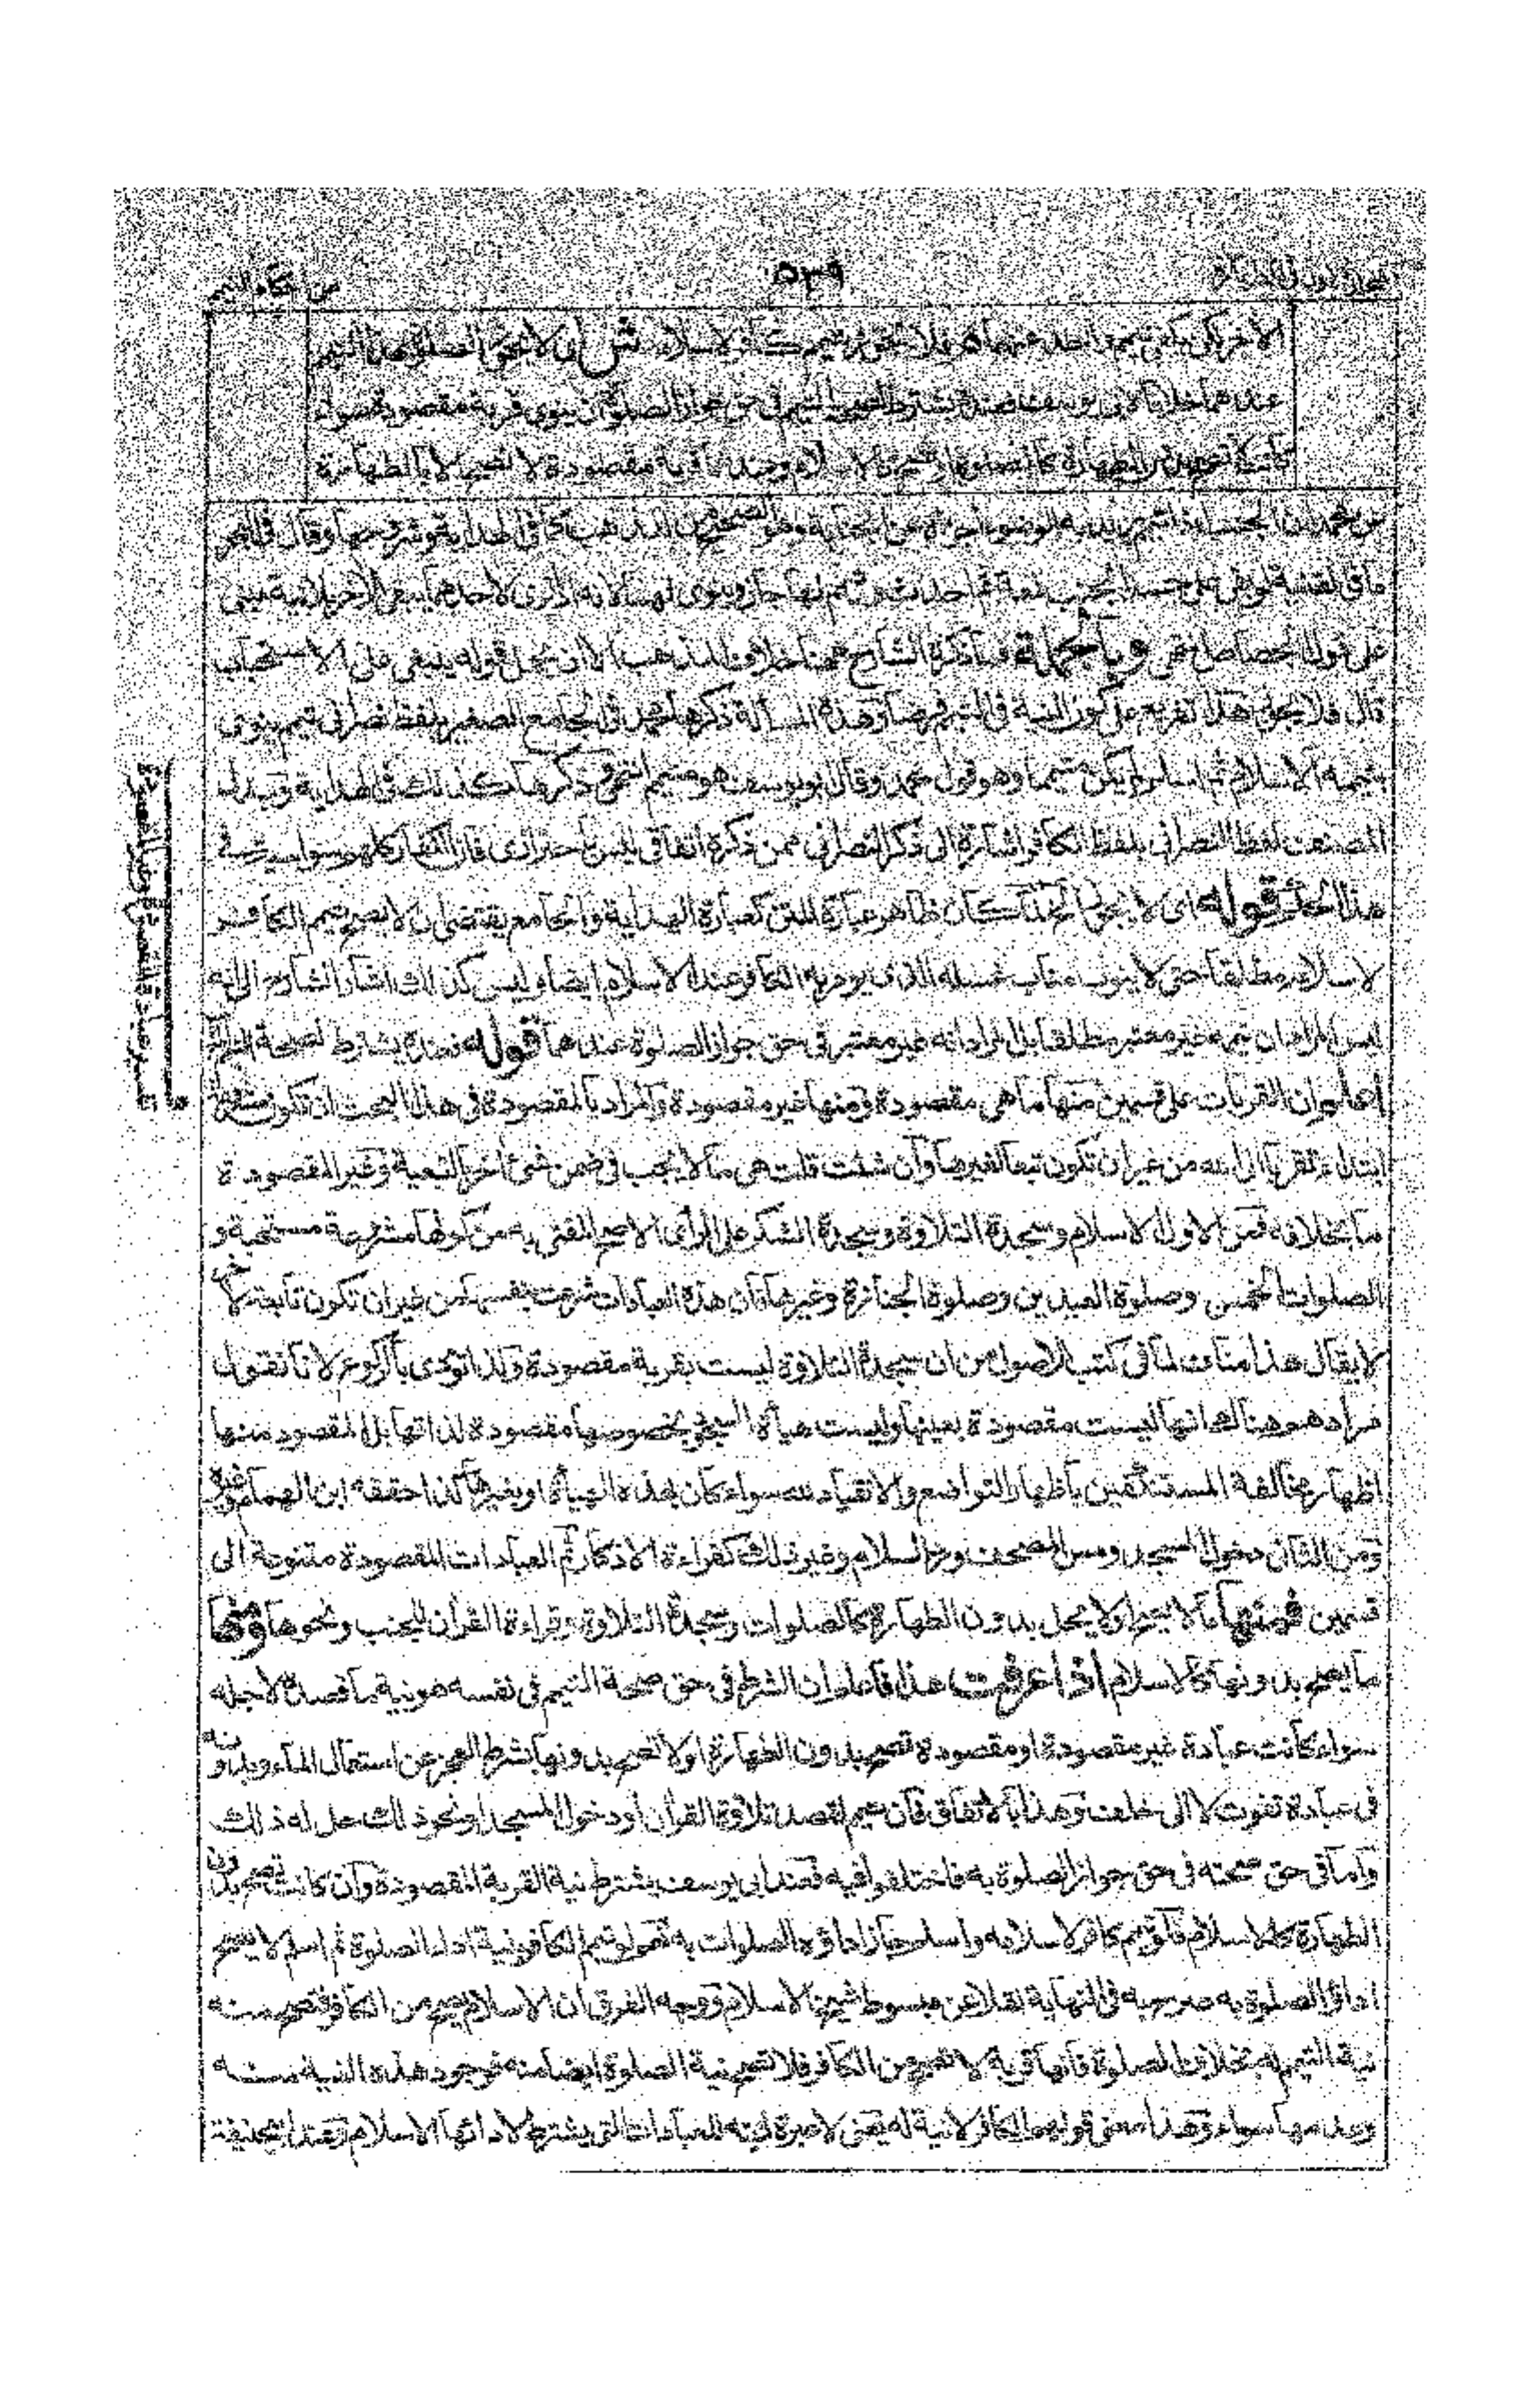 ٥٣٩
من احكام التيمم
الآخر لكن يكفي تيمم واحد عنهما م فلا يجوز تيمم كافر لاسلامه ش اي لا يجوز الصلوة بهذا التيمم
عندهما خلافا لابي يوسف فعنده يشترط لصحة التيمم في حق جواز الصلوة ان ينوي قربة مقصودة سواء
كانت لا تصح بدون الطهارة كالصلوة او تصح كالاسلام وعندهما قربة مقصودة لا تصح الا بالطهارة
عن محمد ان الجنب اذا تيمم يريد به الوضوء اجزاه عن الجنابة وهو الصحيح من المذهب كما في الهداية وشروحها وقال في البحر
ما في لو بقي على جسد الجنب لمعة ثم احدث وتيمم لهما جاز وينوي لهما لانه اذا نوى لاحدهما يبقى الآخر بلا نية مبني
على قول الجصاص انتهى وبالجملة فما ذكره الشارح ههنا خلاف المذهب الا ان يحمل قوله ينبغي على الاستحباب
قال فلا يجوز هذا تفريع على كون النية في التيمم فرضا وهذه المسألة ذكرها محمد في الجامع الصغير بلفظ نصراني تيمم ينوي
بتيممه الاسلام ثم اسلم لم يكن متيمما وهو قول محمد وقال ابو يوسف هو متيمم انتهى وذكرها كذلك في الهداية وتبديل
المصنف لفظ النصراني بلفظ الكافر اشارة الى ان ذكر النصراني ممن ذكره اتفاقي ليس باحترازي فان الكفار كلهم سواسية في
هذا الحكم قوله اي لا يجوز الخ لما كان ظاهر عبارة المتن كعبارة الهداية والجامع يقتضي ان لا يصح تيمم الكافر
لاسلامه مطلقا حتى لا ينوب مناب غسله الذي يؤمر به الكافر عند الاسلام ايضا وليس كذلك اشار الشارح الى انه
ليس المراد ان تيممه غير معتبر مطلقا بل المراد انه غير معتبر في حق جواز الصلوة عندهما قوله فعنده يشترط لصحة التيمم الخ
اعلم ان القربات على قسمين منها ما هي مقصودة ومنها غير مقصودة والمراد بالمقصودة في هذا البحث ان تكون مشروعة
ابتداء تقربا الى الله من غير ان تكون تبعا لغيرها وان شئت قلت هي ما لا يجب في ضمن شئ آخر بالتبعية وغير المقصودة
ما بخلافه فمن الاول الاسلام وسجدة التلاوة وسجدة الشكر على الرأي الاصح المفتى به من كونها مشروعة مستحبة و
الصلوات الخمس وصلوة العيدين وصلوة الجنازة وغيرها فان هذه العبادات شرعت بنفسها من غير ان تكون تابعة لاخرى
لا يقال هذا مناف لما في كتب الاصول من ان سجدة التلاوة ليست بقربة مقصودة ولذا تؤدى بالركوع لانا نقول
مرادهم هناك انها ليست مقصودة بعينها وليست هيأة السجود بخصوصها مقصودة لذاتها بل المقصود منها
اظهار مخالفة المستنكفين باظهار التواضع والانقياد لله سواء كان بهذه الهيأة او بغيرها كذا حققه ابن الهمام وغيره
ومن الثاني دخول المسجد ومس المصحف ورد السلام وغير ذلك كقراءة الاذكار ثم العبادات المقصودة متنوعة الى
قسمين فمنها ما لا يصح او لا يحل بدون الطهارة كالصلوات وسجدة التلاوة وقراءة القرآن للجنب ونحوها ومنها
ما يصح بدونها كالاسلام اذا عرفت هذا فاعلم ان الشرط في حق صحة التيمم في نفسه هو نية ما قصد لاجله
سواء كانت عبادة غير مقصودة او مقصودة تصح بدون الطهارة او لا تصح بدونها بشرط العجز عن استعمال الماء وبدونه
في عبادة تفوت لا الى خلف وهذا بالاتفاق فان تيمم لقصد تلاوة القرآن او دخول المسجد او نحو ذلك حل له ذلك
واما في حق صحته في حق جواز الصلوة به فاختلفوا فيه فعند ابي يوسف يشترط نية القربة المقصودة وان كانت تصح بدون
الطهارة كالاسلام فلو تيمم كافر لاسلامه واسلم جاز اداؤه الصلوات به نعم لو تيمم الكافر بنية اداء الصلوة ثم اسلم لا يصح
اداؤ الصلوة به صرح به في النهاية نقلا عن مبسوط شيخ الاسلام ووجه الفرق ان الاسلام يصح من الكافر فتصح منه
نية التيمم له بخلاف الصلوة فانها قربة لا تصح من الكافر فلا تصح نية الصلوة ايضا منه فوجود هذه النية منه
وعدمها سواء وهذا معنى قولهم الكافر لا نية له يعني لا عبرة لنيته للعبادات التي يشترط لادائها الاسلام وعند ابي حنيفة